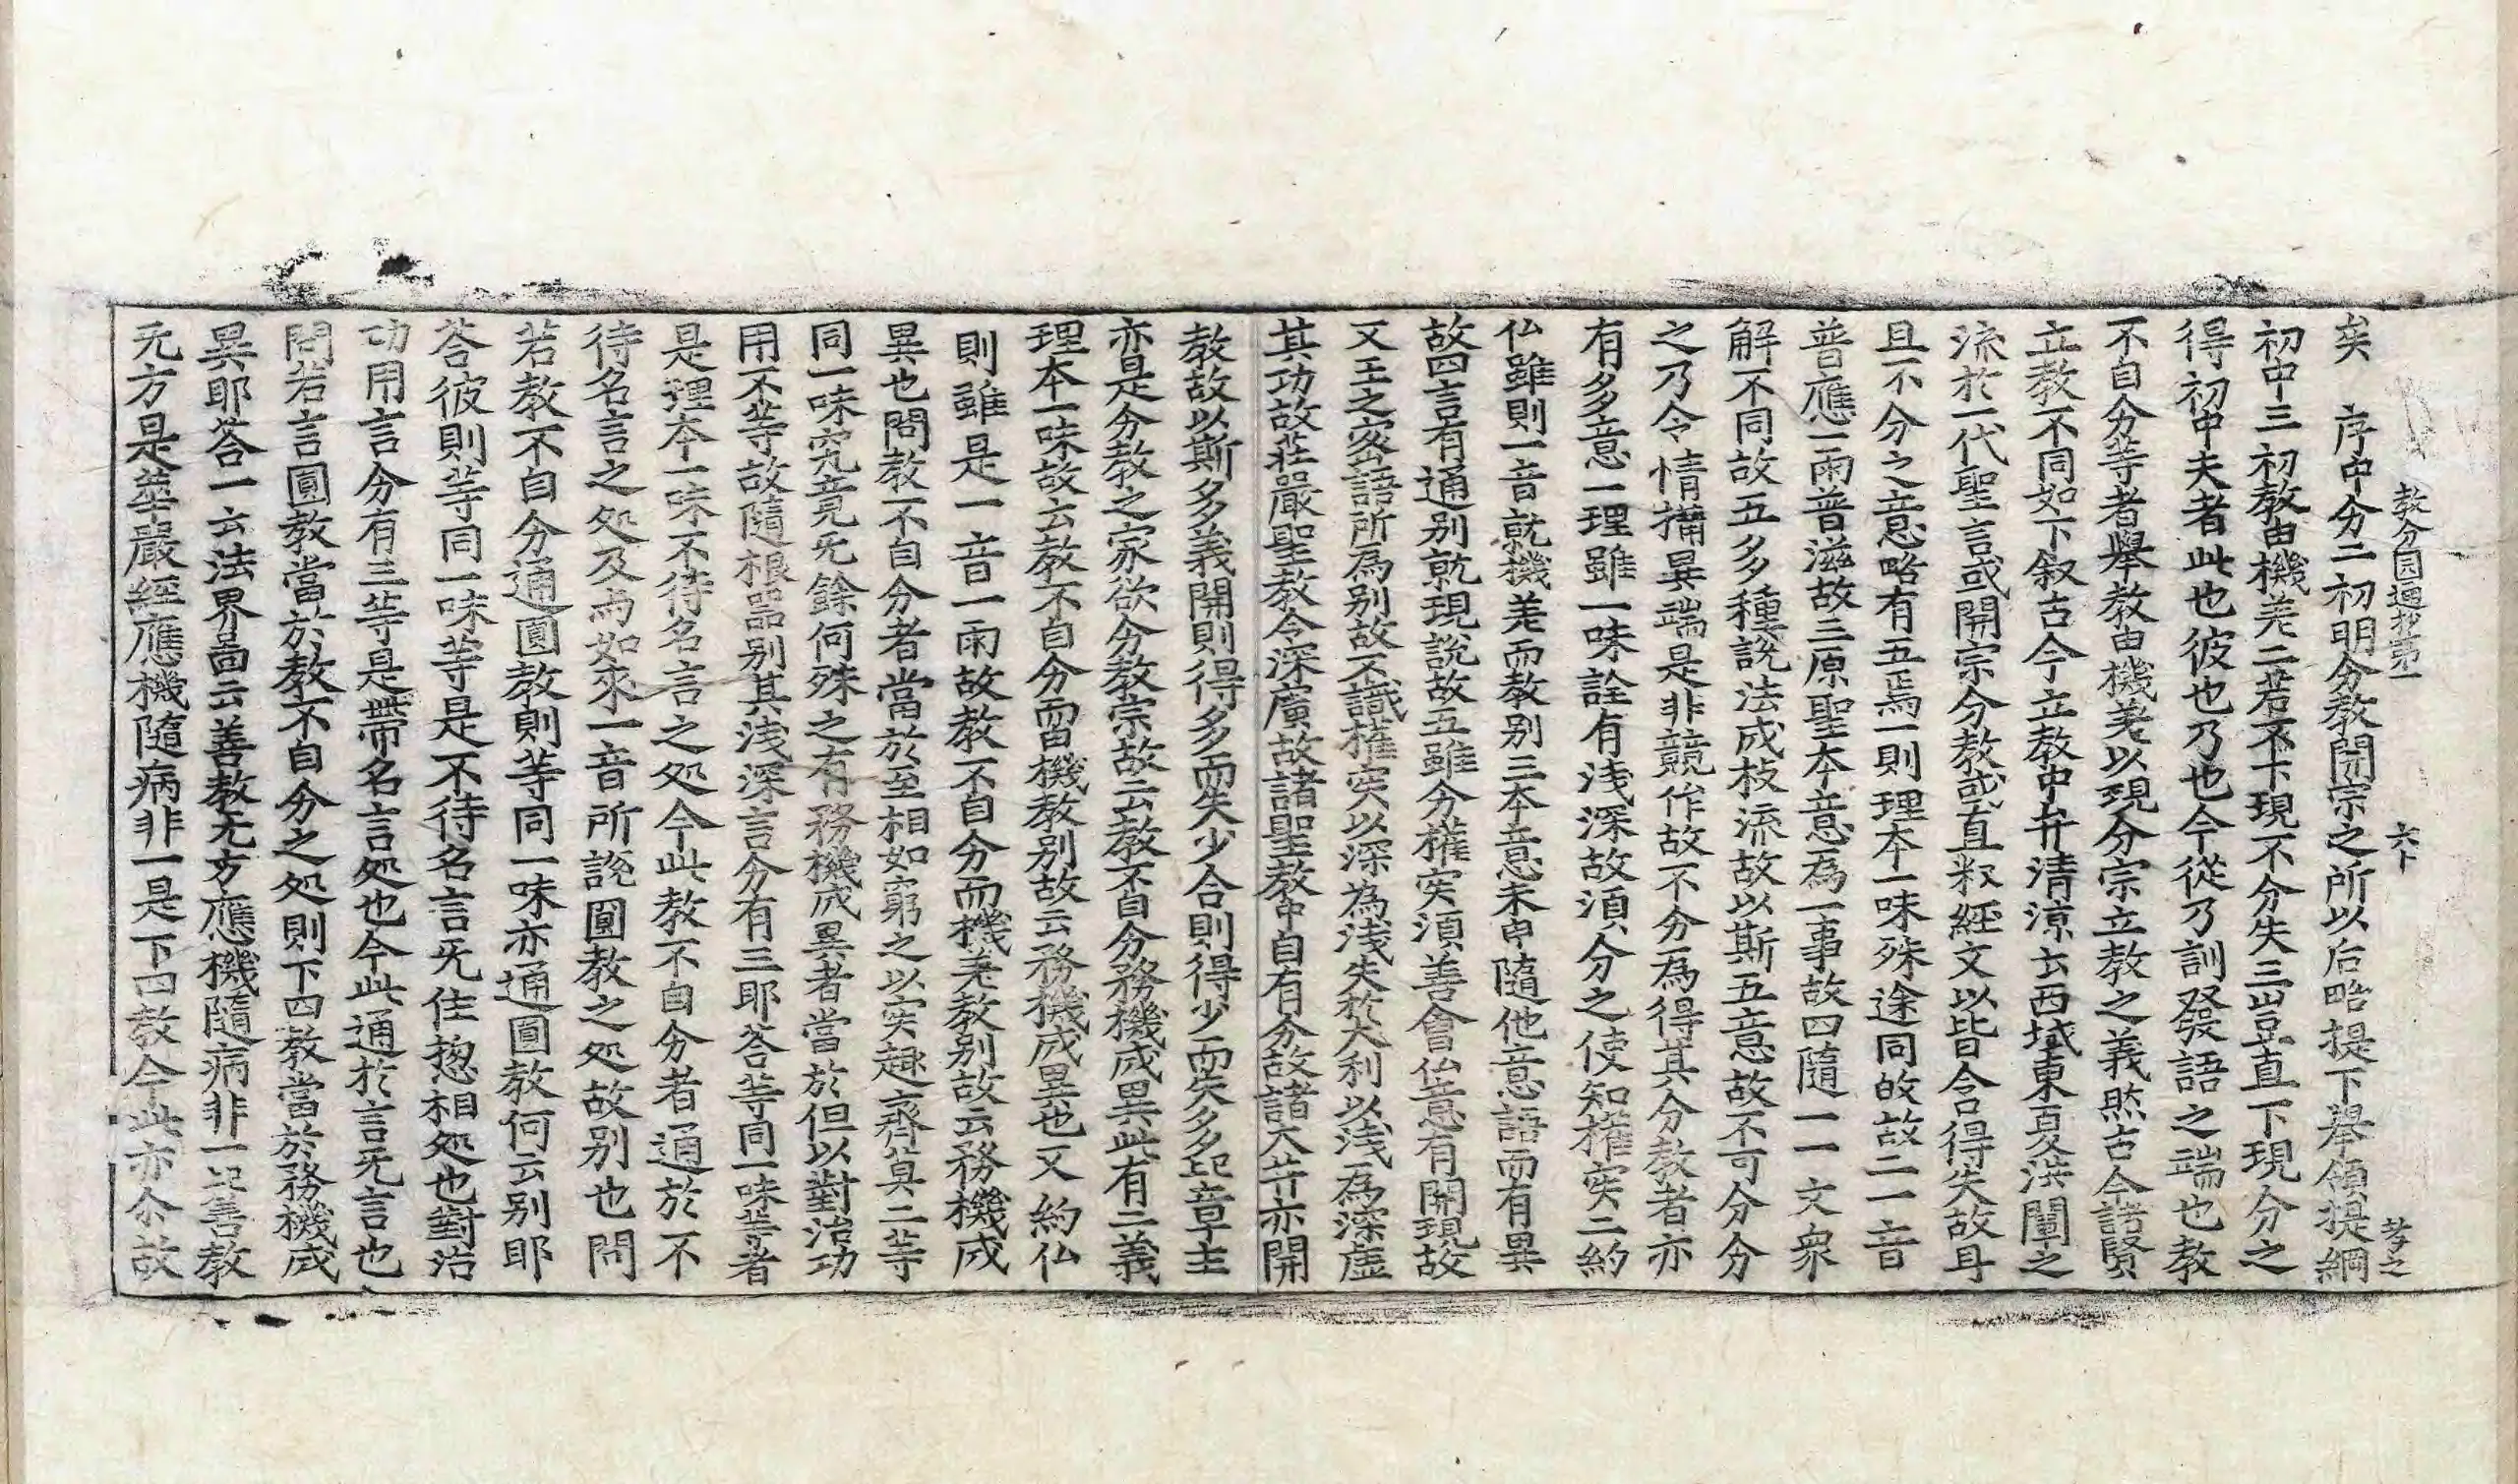 教分圓通抄第一 六下 孝之
矣 序中分二初明分教開宗之所以后略提下擧領提綱
初中三初教由機羌二若不下現不分失三豈直下現分之
得初中夫者此也彼也乃也今從乃訓發語之端也教
不自分等者擧教由機羌以現分宗立教之義然古今諸賢
立教不同如下叙古今立教中弁清涼云西域東夏洪闡之
流於一代聖言或開宗分教或直釈經文以皆含得失故耳
且不分之意略有五焉一則理本一味殊途同故故二一音
普應一雨普滋故三原聖本意為一事故四隨一一文衆
解不同故五多種說法成枝流故以斯五意故不可分分
之乃令情搆異端是非競作故不分為得其分教者亦
有多意一理雖一味詮有淺深故湏分之使知權实二約
仏雖則一音就機羌而教别三本意未申隨他意語而有異
故四言有通别就現說故五雖分權实湏善會仏意有開現故
又王之宻語所為别故不識權实以深為淺失於大利以淺為深虛
其功故莊嚴聖教令深廣故諸聖教中自有分故諸大芥亦開
教故以斯多義開則得多而失少合則得少而失多記章主
亦是分教之家欲分教宗故云教不自分務機成異此有二義
理本一味故云教不自分而由機教别故云務機成異也又約仏
則雖是一音一雨故教不自分而機羌教别故云務機成
異也問教不自分者當於至相如窮之以实趣齊莫二等
同一味究竟旡餘何殊之有務機成異者當於但以對治功
用不等故隨根器别其淺深言分有三耶荅等同一味等者
是理本一味不待名言之処今此教不自分者通於不
待名言之処及与如來一音所說圓教之処故别也問
若教不自分通圓教則等同一味亦通圓教何云别耶
荅彼則等同一味等是不待名言旡佳揔相処也對治
功用言分有三等是帶名言処也今此通於言旡言也
問若言圓教當於教不自分之処則下四教當於務機成
異耶荅一云法界啚云善教旡方應機隨病非一記善教
旡方是華嚴經應機隨病非一是下四教今此亦尒故